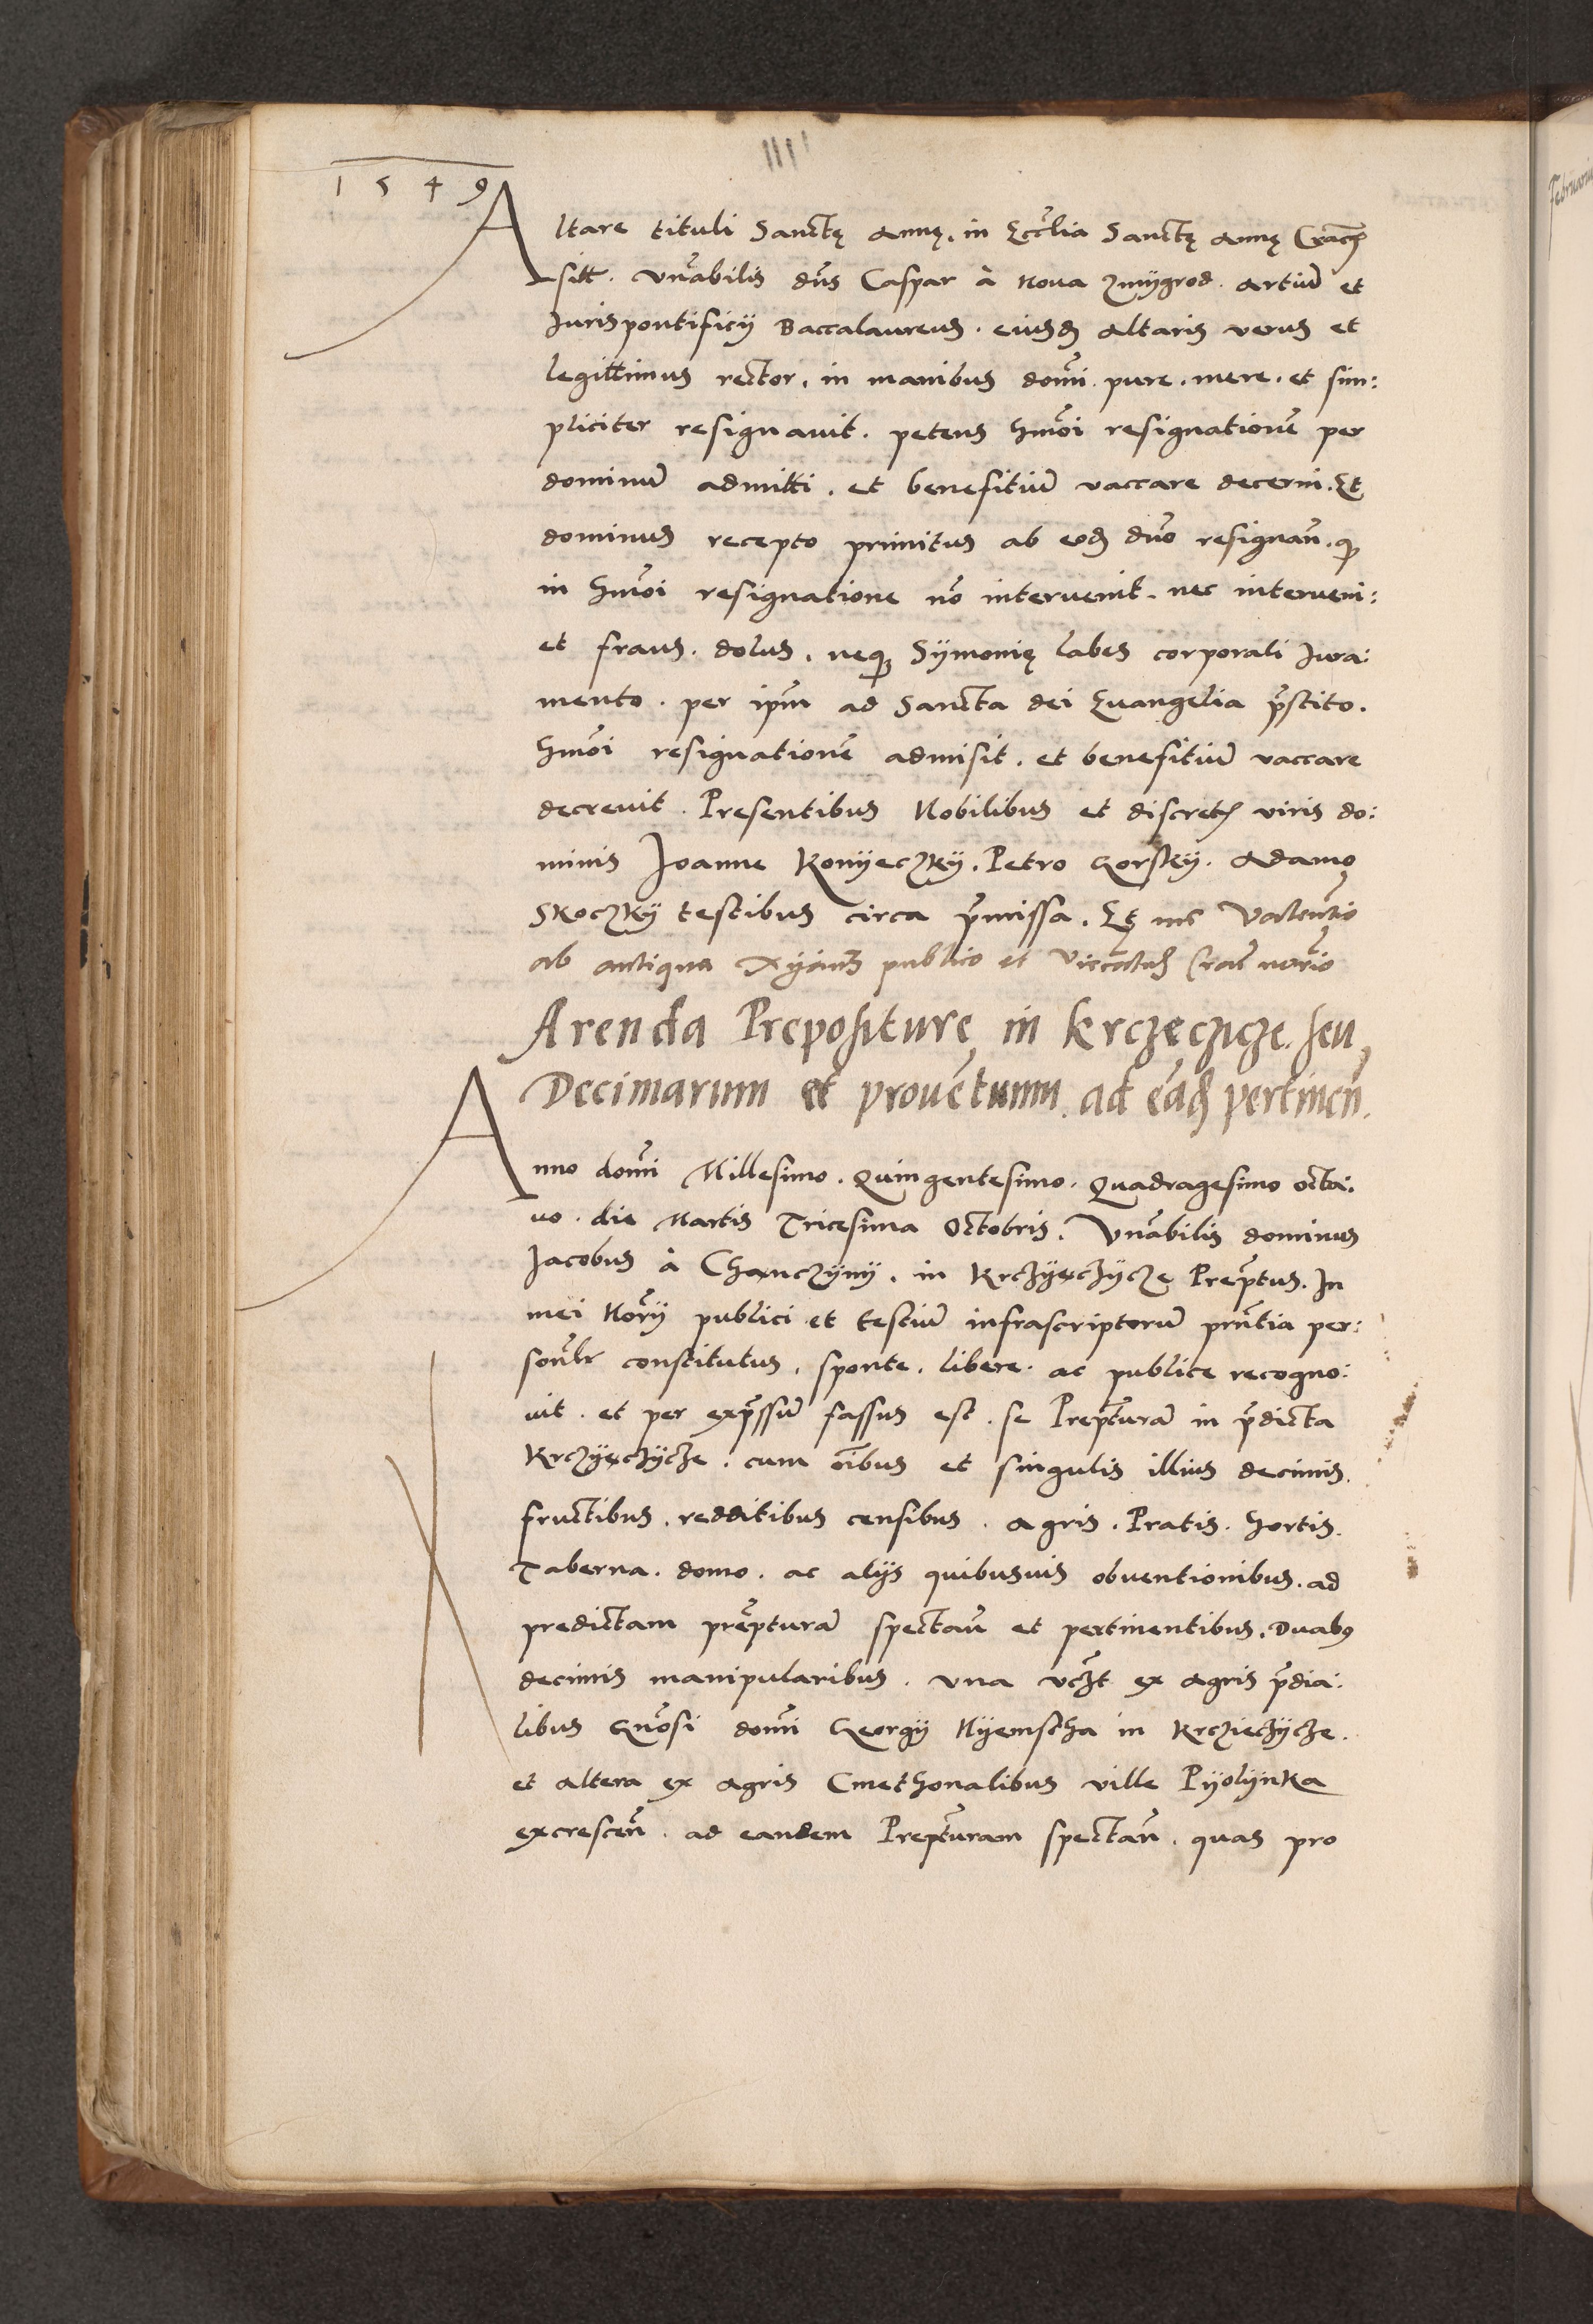 1549
Altare tituli Sanctę Annę. in Eccl̃ia Sanctę Annę Cracoñ
sitt̃. Vñabilis dñs Caspar à Noua Zmÿgrod. Artiũ et
Jurispontificÿ Baccalaureus. eiusdẽ Altaris verus et
legittimus rector. in manibus domĩ. pure. mere. et sim:
pliciter resignauit. petens hmõi resignationẽ per
dominũ admitti. et benefitiũ vaccare decerni. Et
dominus recepto primitus ab eodẽ dño resignañ. ꝙ
in hmõi resignatione nõ interuenit. nec interueni:
et fraus. dolus. neqꝫ Sÿmonię labes corporali Jura:
mento. per ipm̃ ad Sancta dei Euangelia p̃stito.
hmõi resignationẽ admisit. et benefitiũ vaccare
decreuit. Presentibus Nobilibus et discretꝭ viris do:
minis Joanne Konÿeczkÿ. Petro Gorskÿ. Adamo
Skoczkÿ testibus circa p̃missa. Et me Valentĩo
ab antiqua publico et norĩo
Arenda Prepositurę in Krczeczicze. seu
Decimarum et prouẽtuum. ad eãdẽ pertineñ.
Anno domĩ Millesimo. Quingentesimo. Quadragesimo octa:
uo. die Martis Tricesima Octobris. Vñabilis dominus
Jacobus à Chanczÿnÿ. in Krczÿeczÿcze Prep̃tus. In
mei Norÿ̃ publici et testiũ infrascriptorũ pñtia per:
sonl̃r constitutus. sponte. libere. ac publice recogno:
uit. et per exp̃ssũ fassus est. se Prep̃turã in p̃dicta
Krczÿeczÿcze. cum oĩbus et singulis illius decimis.
fructibus. redditibus censibus. Agris. Pratis. hortis.
Taberna. domo. ac alÿs quibusuis obuentionibus. ad
predictam prep̃turã spectañ et pertinentibus. Duabꝰ
decimis manipularibus. vna vcz̃t ex Agris p̃dia:
libus Gñosi domĩ Georgÿ Nÿemstha in Krczieczÿcze.
et altera ex Agris Cmethonalibus ville Pÿolÿnka
excresceñ. ad eandem Prep̃turam spectañ. quas pro